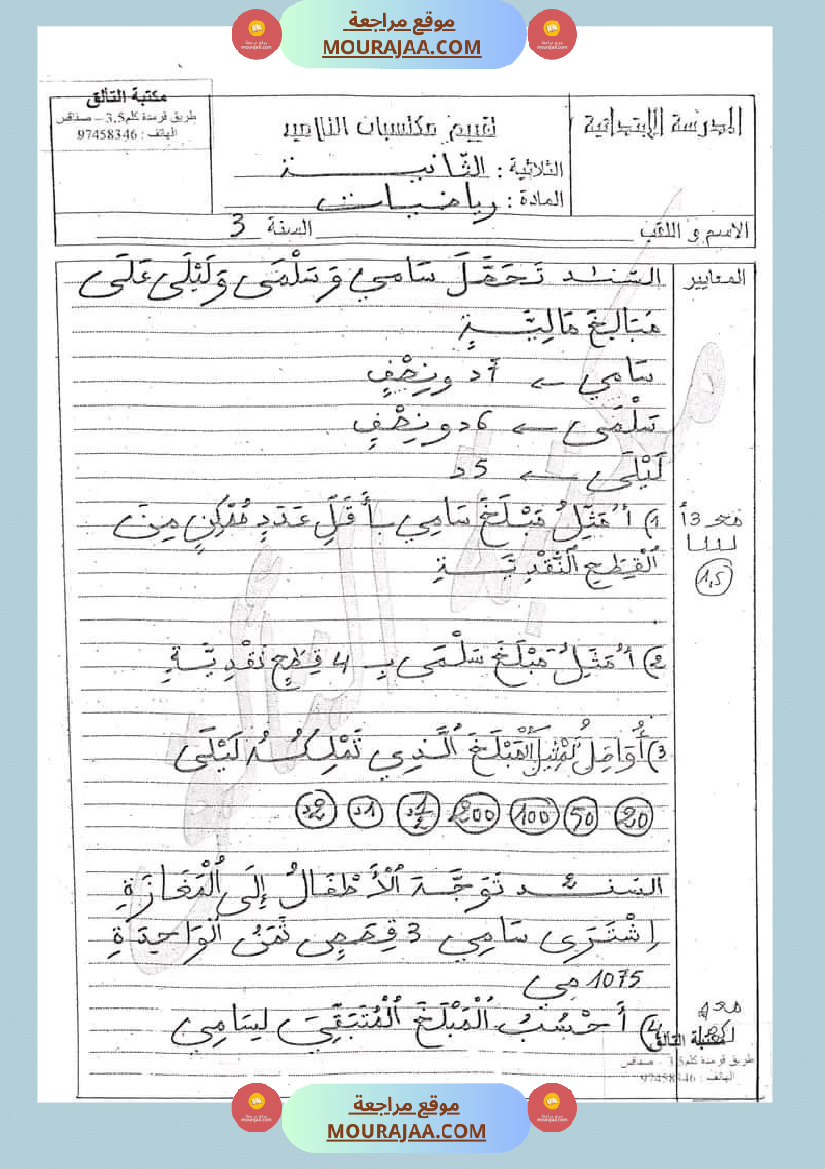 موقع مراجعة
MOURAJAA.COM
مكتبة التألق
طريق قرمدة كلم3.5 - صفاقس
الهاتف : 97458346
تقييم مكتسبات التلاميذ
المدرسة الابتدائية
الثلاثية : الثَّانيـــة
المادة : رياضيات
الاسم و اللقب
السنة 3
المعايير
السّند 1 تَحَصَّلَ سَامي وَ سَلْمَى وَ لَيْلَى عَلَى
مَبَالِغَ مَالِيَّـــةٍ
سَامي ← 7د ونِصْفٍ
سَلْمَى ← 6د ونِصْفٍ
لَيْلَى ← 5د
1) أُمَثِّلُ مَبْلَغَ سَامِي بـأَقَلِّ عَدَدٍ مُمْكِنٍ مِنَ
الْقِطَعِ النَّقْدِيَّـــةِ
مع3 أ
1,5
2) أُمَثِّلُ مَبْلَغَ سَلْمَى بِـ 4 قِطَعٍ نَقْدِيَّـــةٍ
3) أُوَاصِلُ تَمْثِيلَ الْمَبْلَغَ الَّذِي تَمْلِكُـــهُ لَيْلَى
20 50 100 200 1/2د 1د 2د
السّنـــد 2 تَوَجَّـــهَ الْأَطْفَالُ إِلَى الْمَغَازَةِ
اِشْتَرَى سَامِي 3 قِصَصٍ ثَمَنُ الْوَاحِدَةِ
1075 مي
4) أَحْسُبُ الْمَبْلَغَ الْمُتَبَقِّيَ لِسَامِي
مكتبة التألق
طريق قرمدة كلم3.5 - صفاقس
الهاتف : 97458346
موقع مراجعة
MOURAJAA.COM